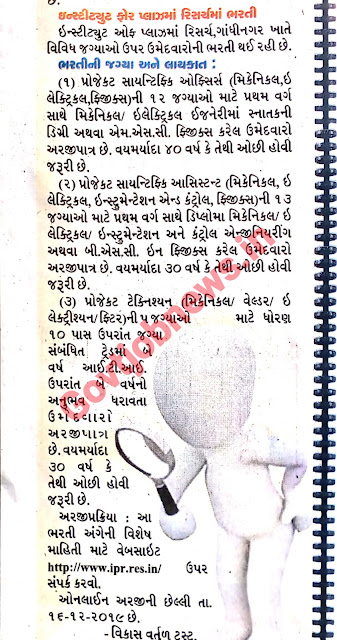 ઇન્સ્ટીટ્યુટ ફોર પ્લાઝમાં રિસર્ચમાં ભરતી
ઇન્સ્ટીટ્યુટ ઓફ પ્લાઝમા રિસર્ચ,ગાંધીનગર ખાતે
વિવિધ જગ્યાઓ ઉપર ઉમેદવારોની ભરતી થઈ રહી છે.
ભરતીની જગ્યા અને લાયકાત :
(૧) પ્રોજેકટ સાયન્ટિફિક ઓફિસર્સ (મિકેનિકલ,ઇ
લેક્ટ્રિકલ,ફિજીક્સ)ની ૧૨ જગ્યાઓ માટે પ્રથમ વર્ગ
સાથે મિકેનિકલ/ ઇલેક્ટ્રિકલ ઈજનેરીમાં સ્નાતકની
ડિગ્રી અથવા એમ.એસ.સી. ફિજીક્સ કરેલ ઉમેદવારો
અરજીપાત્ર છે. વયમર્યાદા ૪૦ વર્ષ કે તેથી ઓછી હોવી
જરૂરી છે.
(૨) પ્રોજેકટ સાયન્ટિફિક આસિસ્ટન્ટ (મિકેનિકલ, ઇ
લેક્ટ્રિકલ, ઇન્સ્ટુમેન્ટેશન એન્ડ કંટ્રોલ, ફિજીક્સ)ની ૧૩
જગ્યાઓ માટે પ્રથમ વર્ગ સાથે ડિપ્લોમા મિકેનિકલ/ ઇ
લેક્ટ્રિકલ/ ઇન્સ્ટુમેન્ટેશન અને કંટ્રોલ એન્જીનિયરીંગ
અથવા બી.એસ.સી. ઇન ફિજીક્સ કરેલ ઉમેદવારો
અરજીપાત્ર છે. વયમર્યાદા ૩૦ વર્ષ કે તેથી ઓછી હોવી
જરૂરી છે.
(૩) પ્રોજેકટ ટેક્નિશ્યન (મિકેનિકલ/ વેલ્ડર/ ઇ
લેક્ટ્રીશ્યન/ફિટર)ની ૫ જગ્યાઓ માટે ધોરણ
૧૦ પાસ ઉપરાંત જગ્યા
સંબંધિત ટ્રેડમાં બે
વર્ષ આઈ.ટી.આઈ.
ઉપરાંત બે વર્ષનો
અનુભવ ધરાવતા
ઉમેદવારો
અરજીપાત્ર
છે. વયમર્યાદા
૩૦ વર્ષ કે
તેથી ઓછી હોવી
જરૂરી છે.
અરજીપ્રક્રિયા : આ
ભરતી અંગેની વિશેષ
માહિતી માટે વેબસાઈટ
http://www.ipr.res.in/ ઉપર
સંપર્ક કરવો.
ઓનલાઈન અરજીની છેલ્લી તા.
૧૬-૧૨-૨૦૧૯ છે.
- વિકાસ વર્તુળ ટ્રસ્ટ.
Govtjobnews.in